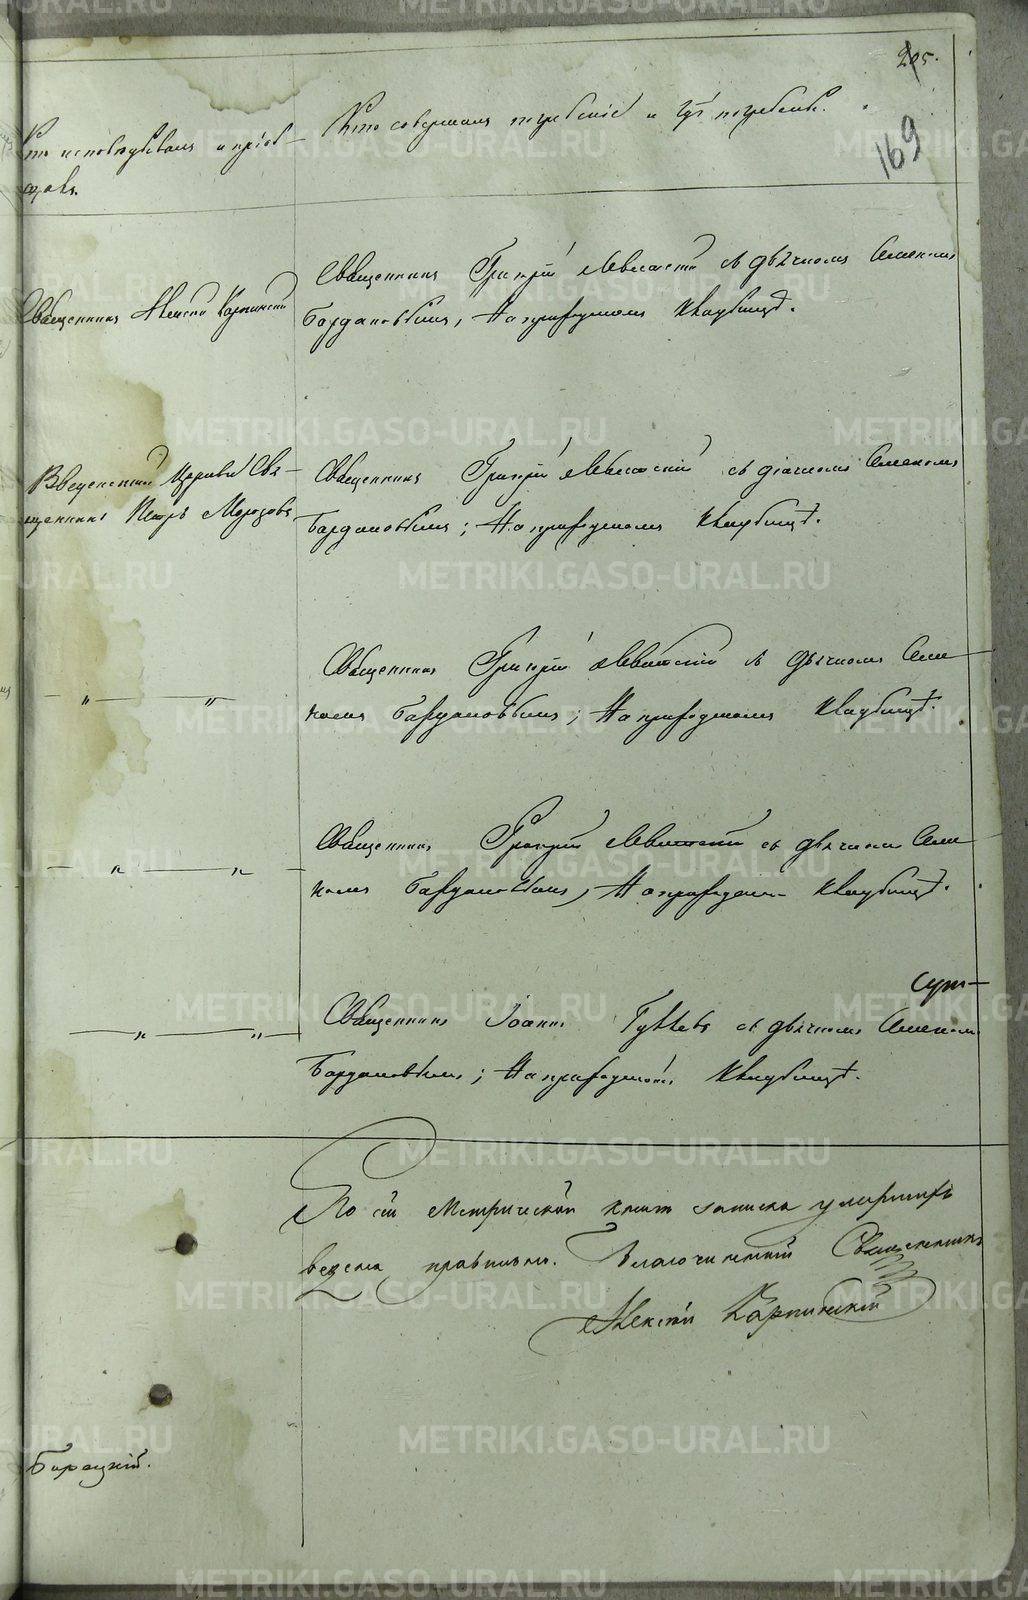 205.
169
Кто исповѣдывалъ и пріоб-
щалъ.
Кто совершалъ погребеніе и гдѣ погребены.
Священникъ Алексій Карпинскій
Священникъ Григорій Левитскій съ дьячкомъ Семеномъ
Богдановымъ, На приходскомъ кладбищѣ.
Введенской Церкви Свя-
щенникъ Петръ Морозовъ
Священникъ Григорій Левитскій съ дьячкомъ Семеномъ
Богдановымъ; На приходскомъ кладбищѣ.
— „ — „
Священникъ Григорій Левитскій съ дьячкомъ Семе-
номъ Богдановымъ; На приходскомъ кладбищѣ.
— „ — „ —
Священникъ Григорій Левитскій съ дьячкомъ Семе-
номъ Богдановымъ, На приходском кладбищѣ.
— „ — „ —
Священникъ Іоаннъ съ дьячкомъ Семеномъ
Богдановымъ; На приходскомъ кладбищѣ.
По сей Метрической книгѣ записка умершихъ
ведена правильно. Благочинный Священникъ
Алексій Карпинскій
METRIKI.GASO-URAL.RU